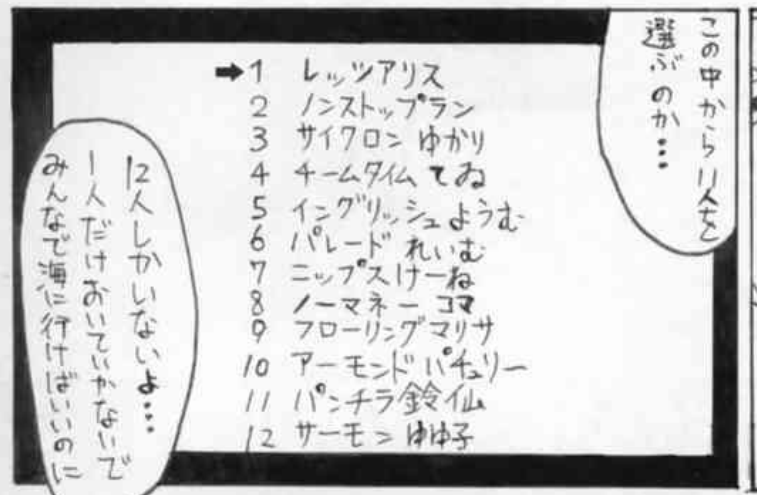 この中から11人を
選ぶのか…
➡1 レッツアリス
2 ノンストップラン
3 サイクロンゆかり
4 チームタイムてゐ
5 イングリッシュようむ
6 パレードれいむ
7 ニップスけーね
8 ノーマネーコマ
9 フローリングマリサ
10 アーモンドパチュリー
11 パンチラ鈴仙
12 サーモンゆゆ子
12人しかいないよ…
1人だけおいていかないで
みんなで海に行けばいいのに